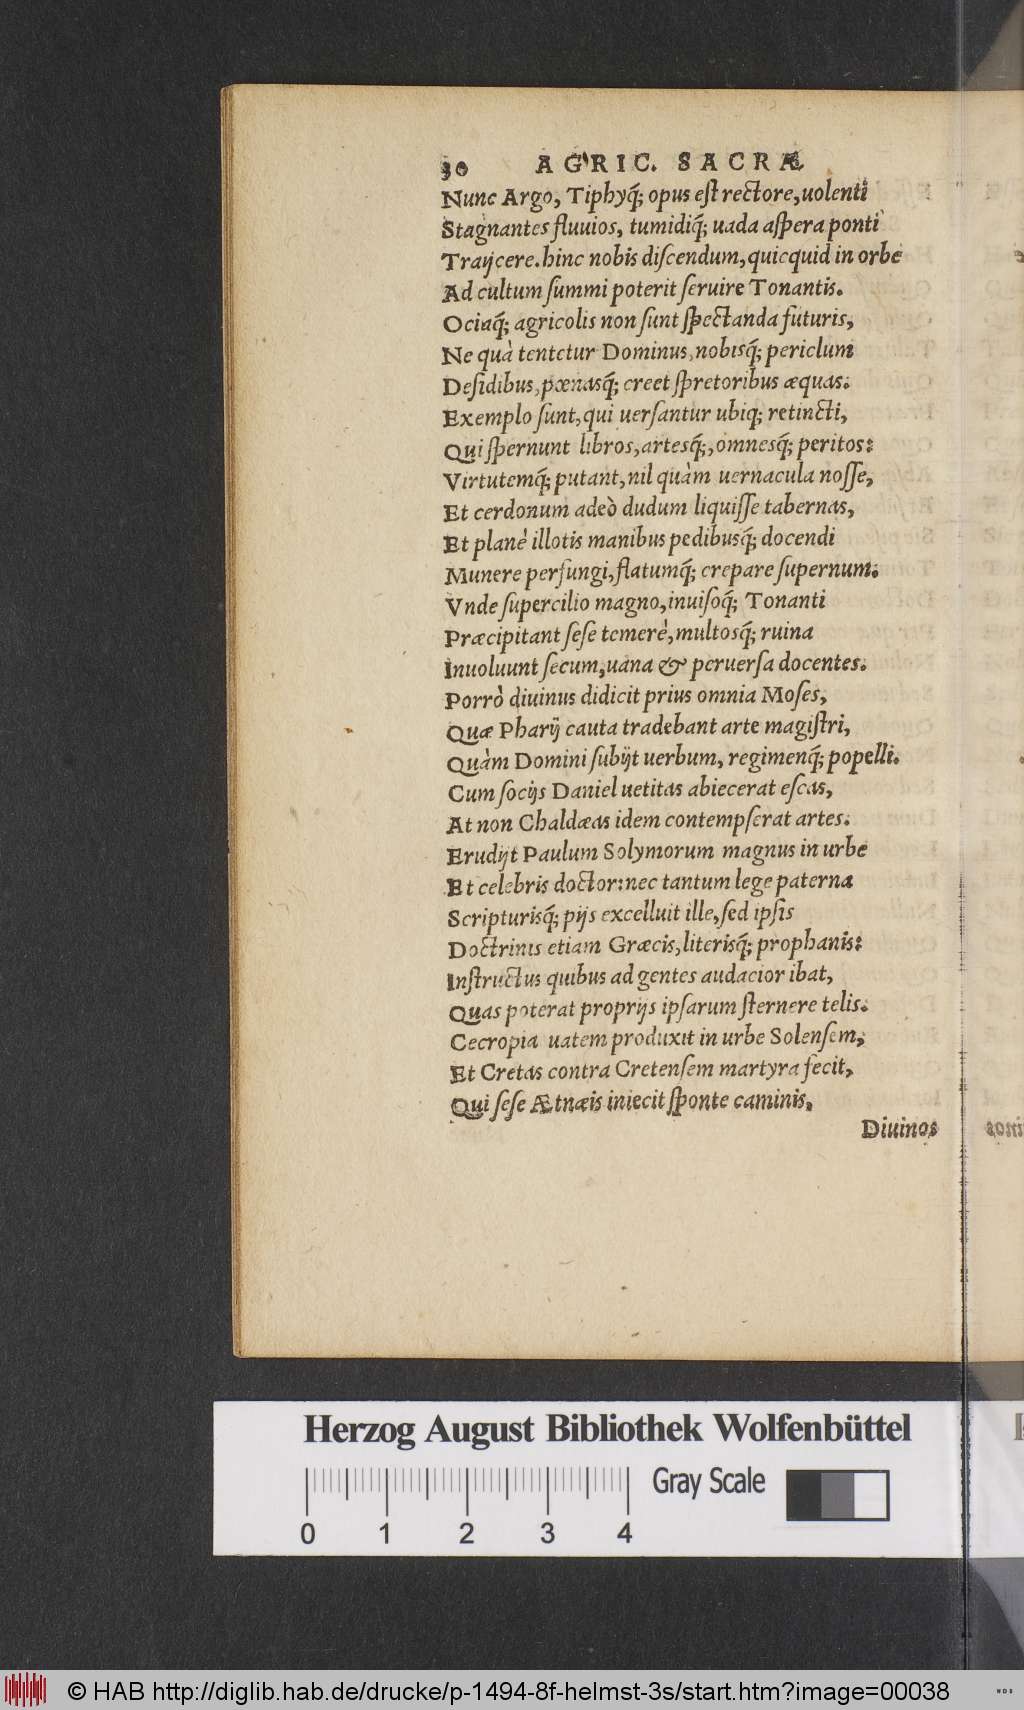 30 AGRIC. SACRÆ
Nunc Argo, Tiphyq́; opus eſt rectore, uolenti
Stagnantes fluuios, tumidiq́; uada aſpera ponti
Traijcere. hinc nobis diſcendum, quicquid in orbe
Ad cultum ſummi poterit ſeruire Tonantis.
Ociaq́; agricolis non ſunt ſpectanda futuris,
Ne quà tentetur Dominus, nobisq́; periclum
Deſidibus, pœnasq́; creet ſpretoribus æquas.
Exemplo ſunt, qui uerſantur ubiq; retincti,
Qui ſpernunt libros, artesq́;, omnesq́; peritos:
Virtutemq́; putant, nil quàm uernacula noſſe,
Et cerdonum adeò dudum liquiſſe tabernas,
Et planè illotis manibus pedibusq́; docendi
Munere perfungi, flatumq́; crepare ſupernum.
Vnde ſupercilio magno, inuiſoq́; Tonanti
Præcipitant ſeſe temerè, multosq́; ruina
Inuoluunt ſecum, uana & peruerſa docentes.
Porrò diuinus didicit prius omnia Moſes,
Quæ Pharij cauta tradebant arte magiſtri,
Quàm Domini ſubijt uerbum, regimenq́; popelli.
Cum ſocijs Daniel uetitas abiecerat eſcas,
At non Chaldæas idem contempſerat artes.
Erudijt Paulum Solymorum magnus in urbe
Et celebris doctor: nec tantum lege paterna
Scripturisq́; pijs excelluit ille, ſed ipſis
Doctrinis etiam Græcis, literisq́; prophanis:
Inſtructus quibus ad gentes audacior ibat,
Quas poterat proprijs ipſarum ſternere telis.
Cecropia uatem produxit in urbe Solenſem,
Et Cretas contra Cretenſem martyra fecit,
Qui ſeſe Ætnæis iniecit ſponte caminis,
Diuinos
Herzog August Bibliothek Wolfenbüttel
Gray Scale
0 1 2 3 4
© HAB http://diglib.hab.de/drucke/p-1494-8f-helmst-3s/start.htm?image=00038